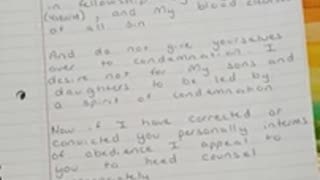 in fellowship
, and my blood cleanses
of all sin
And do not give yourselves
over to condemnation. I
desire not for my sons and
daughters to be led by
a spirit of condemnation
Now.. if I have corrected or
convicted you personally interms
of obedience I appeal to
you to heed counsel